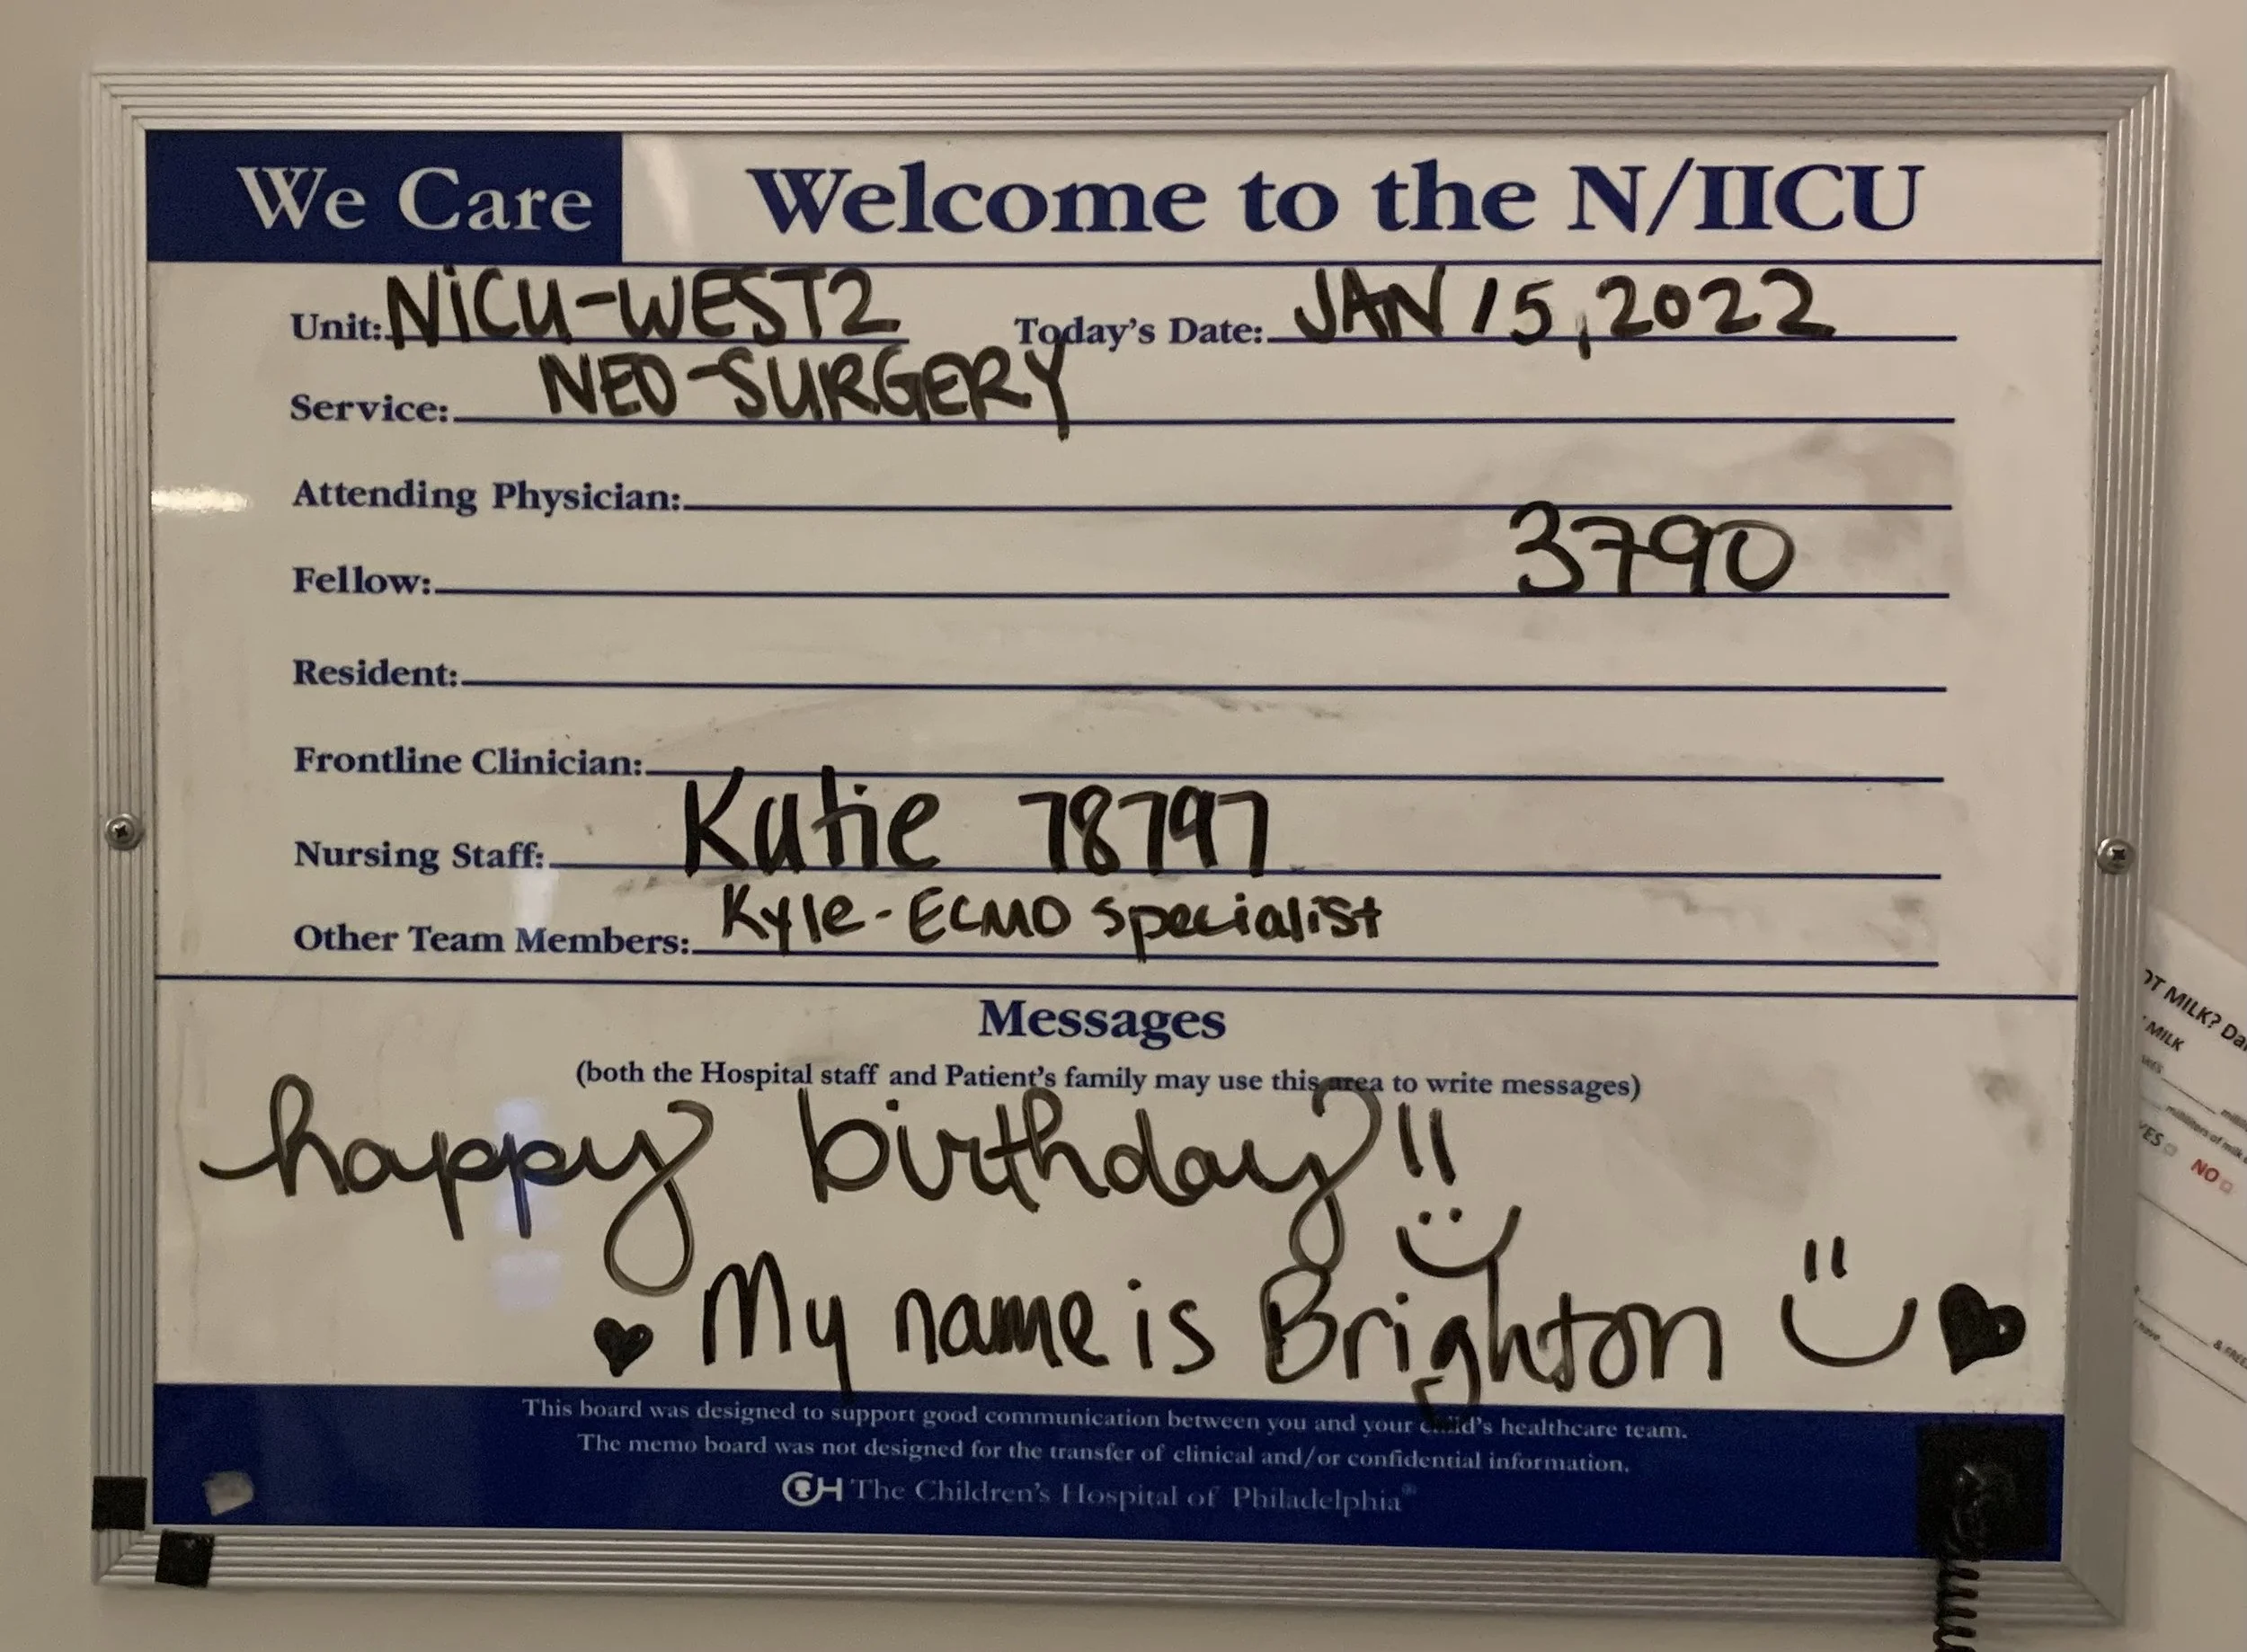 We Care Welcome to the N/IICU
Unit: NiCU-WEST2 Today's Date: JAN 15, 2022
Service: NEO-SURGERY
Attending Physician:
Fellow: 3790
Resident:
Frontline Clinician:
Nursing Staff: Katie 78797
Other Team Members: Kyle-ECMO specialist
Messages
(both the Hospital staff and Patient's family may use this area to write messages)
happy birthday!!
My name is Brighton
This board was designed to support good communication between you and your child's healthcare team.
The memo board was not designed for the transfer of clinical and/or confidential information.
CH The Children's Hospital of Philadelphia®
MILK?
MILK
milliliters of milk
YES
NO